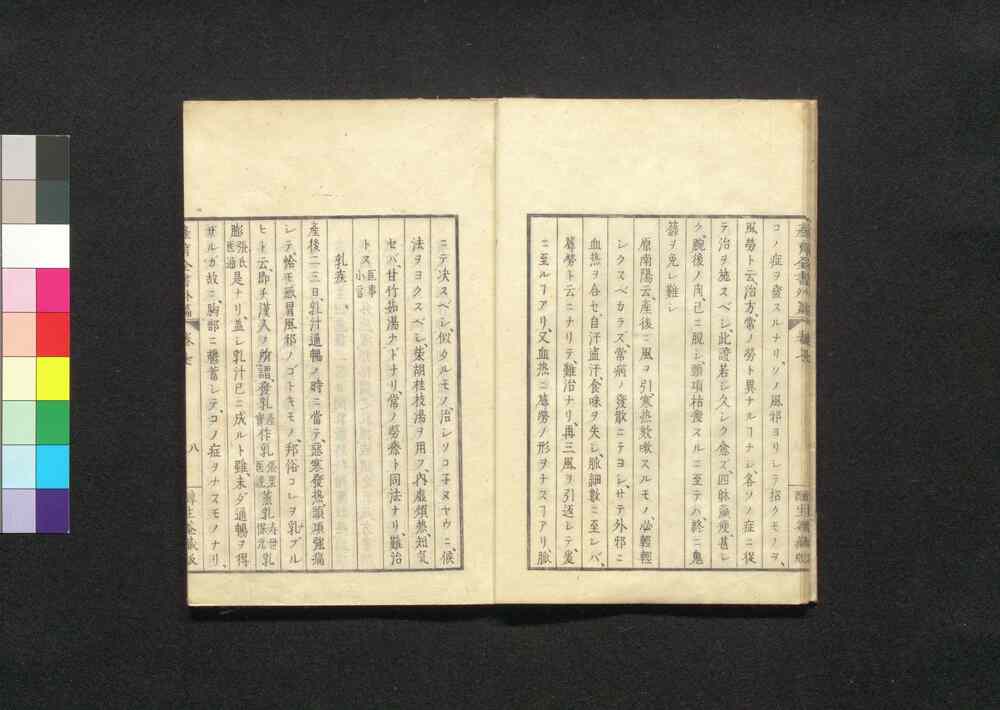 コノ症ヲ發スルナリ、ソノ風邪ヨリシテ招クモノヲ、
風勞ト云、治方、常ノ勞ト異ナルヿナシ、各ソノ症ニ從
テ治ヲ施スベシ、此證若シ久シク愈ズ、四肢羸瘦、甚シ
ク、腕後ノ肉、已ニ脫シ、頭項枯瘦スルニ至テハ、終ニ鬼
籙ヲ免レ難シ
原南陽云、産後ニ風ヲ引、寒熱欬嗽スルモノ、必輕輕
シクスベカラズ、常病ノ發散ニテヨシ、サテ外邪ニ
血熱ヲ合セ、自汗盗汗、食味ヲ失シ、脈細數ニ至レバ、
蓐勞ト云ニナリテ、難治ナリ、再三風ヲ引返シテ、蓐
ニ至ルヿアリ、又血熱ニ蓐勞ノ形ヲナスヿアリ、脈
ニテ决スベシ、似タルモノ、治シソコ子ヌヤウニ、候
法ヲヨクスベシ、柴胡桂枝湯ヲ用フ、内虚煩熱、短氣
セバ、甘竹茹湯ナドナリ、常ノ勞瘵ト同法ナリ、難治
トス 醫事小言
乳疾
産後二三日、乳汁通暢ノ時ニ當テ、惡寒發熱、頭項強痛
シテ、恰モ感冒風邪ノゴトキモノ、邦俗コレヲ乳ブル
ヒト云、即チ漢人ノ所謂、發乳 産寶 作乳 張里醫通 蒸乳 壽世保元 乳
膨 張氏醫通 是ナリ、蓋シ乳汁已ニ成ルト雖、未ダ通暢ヲ得
ザルガ故ニ、胸部ニ鬱蓄シテ、コノ症ヲナスモノナリ、
八